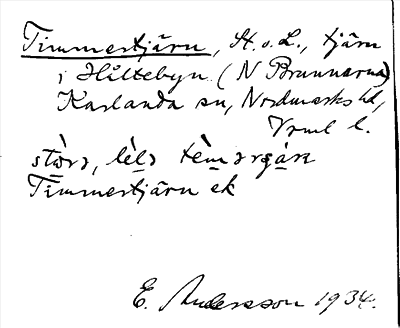 Timmertjärn, St. o. L., tjärn
i Håltebyn (N Brunnarna)
Karlanda sn, Nordmarks hd,
Vrml l.
stòrə, lèlə tèmərçạ̀ɳ
Timmertjärn ek
E. Andersson 1934.